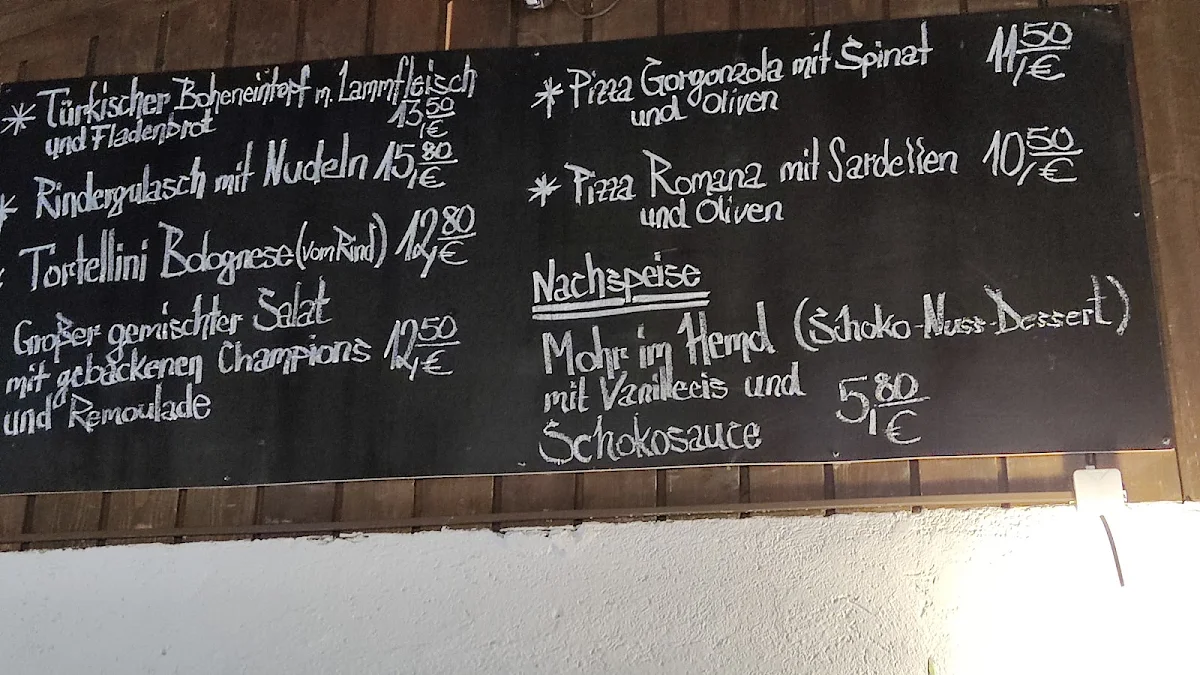 * Türkischer Boheneintopf m. Lammfleisch
und Fladenbrot 13,50 €
* Rindergulasch mit Nudeln 15,80 €
Tortellini Bolognese (vom Rind) 12,80 €
Großer gemischter Salat
mit gebackenen Champions 12,50 €
und Remoulade
* Pizza Gorgonzola mit Spinat 11,50 €
und Oliven
* Pizza Romana mit Sardellen 10,50 €
und Oliven
Nachspeise
Mohr im Hemd (Schoko-Nuss-Dessert)
mit Vanilleeis und 5,80 €
Schokosauce